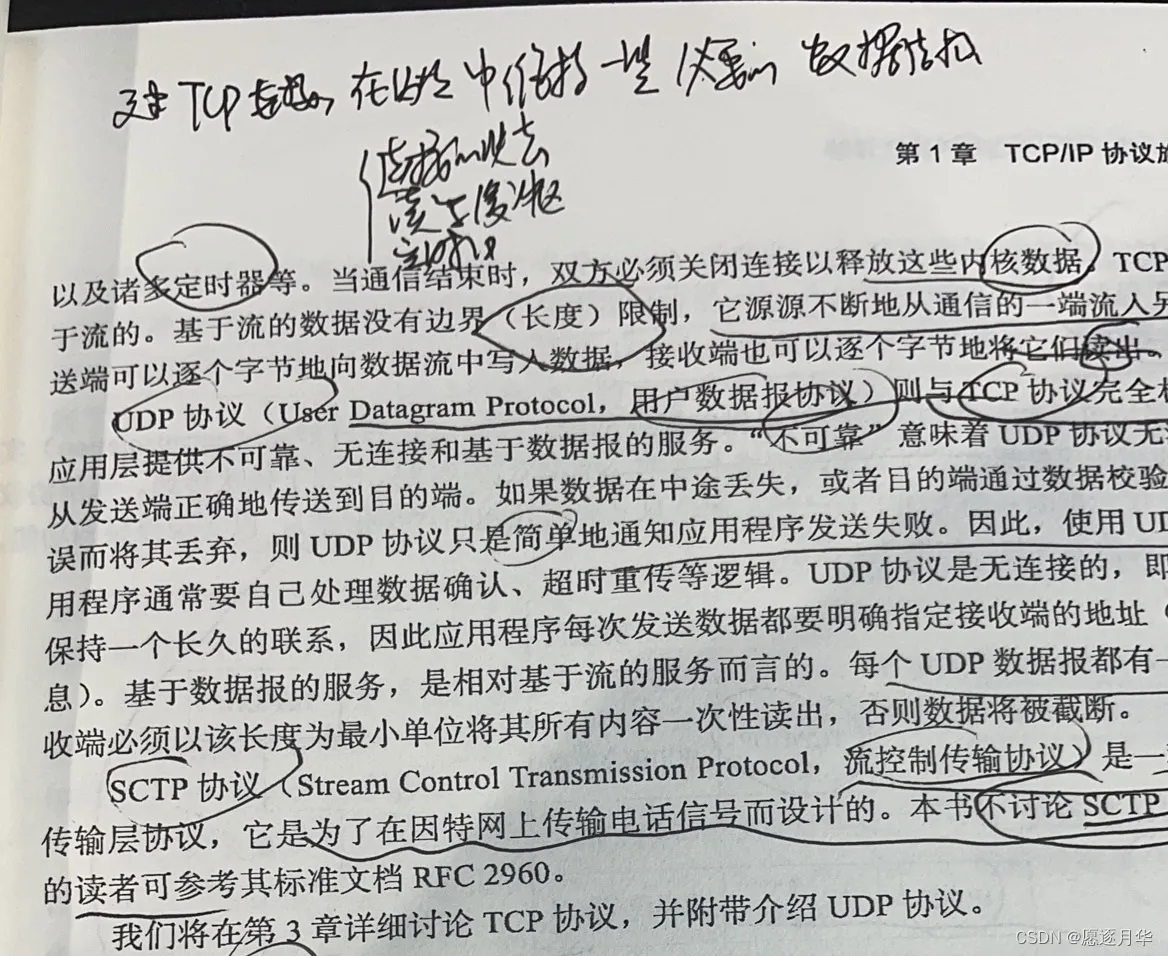 TCP 在内核中维持一些必要的数据结构
读写缓冲区
定时器
第 1 章 TCP/IP 协议族
以及诸多定时器等。当通信结束时，双方必须关闭连接以释放这些内核数据。TCP
于流的。基于流的数据没有边界（长度）限制，它源源不断地从通信的一端流入另
送端可以逐个字节地向数据流中写入数据，接收端也可以逐个字节地将它们读出。
UDP 协议（User Datagram Protocol，用户数据报协议）则与 TCP 协议完全相
应用层提供不可靠、无连接和基于数据报的服务。“不可靠”意味着 UDP 协议无法
从发送端正确地传送到目的端。如果数据在中途丢失，或者目的端通过数据校验
误而将其丢弃，则 UDP 协议只是简单地通知应用程序发送失败。因此，使用 UD
用程序通常要自己处理数据确认、超时重传等逻辑。UDP 协议是无连接的，即
保持一个长久的联系，因此应用程序每次发送数据都要明确指定接收端的地址（
息）。基于数据报的服务，是相对基于流的服务而言的。每个 UDP 数据报都有一
收端必须以该长度为最小单位将其所有内容一次性读出，否则数据将被截断。
SCTP 协议（Stream Control Transmission Protocol，流控制传输协议）是一
传输层协议，它是为了在因特网上传输电话信号而设计的。本书不讨论 SCTP
的读者可参考其标准文档 RFC 2960。
我们将在第 3 章详细讨论 TCP 协议，并附带介绍 UDP 协议。
CSDN @愿逐月华